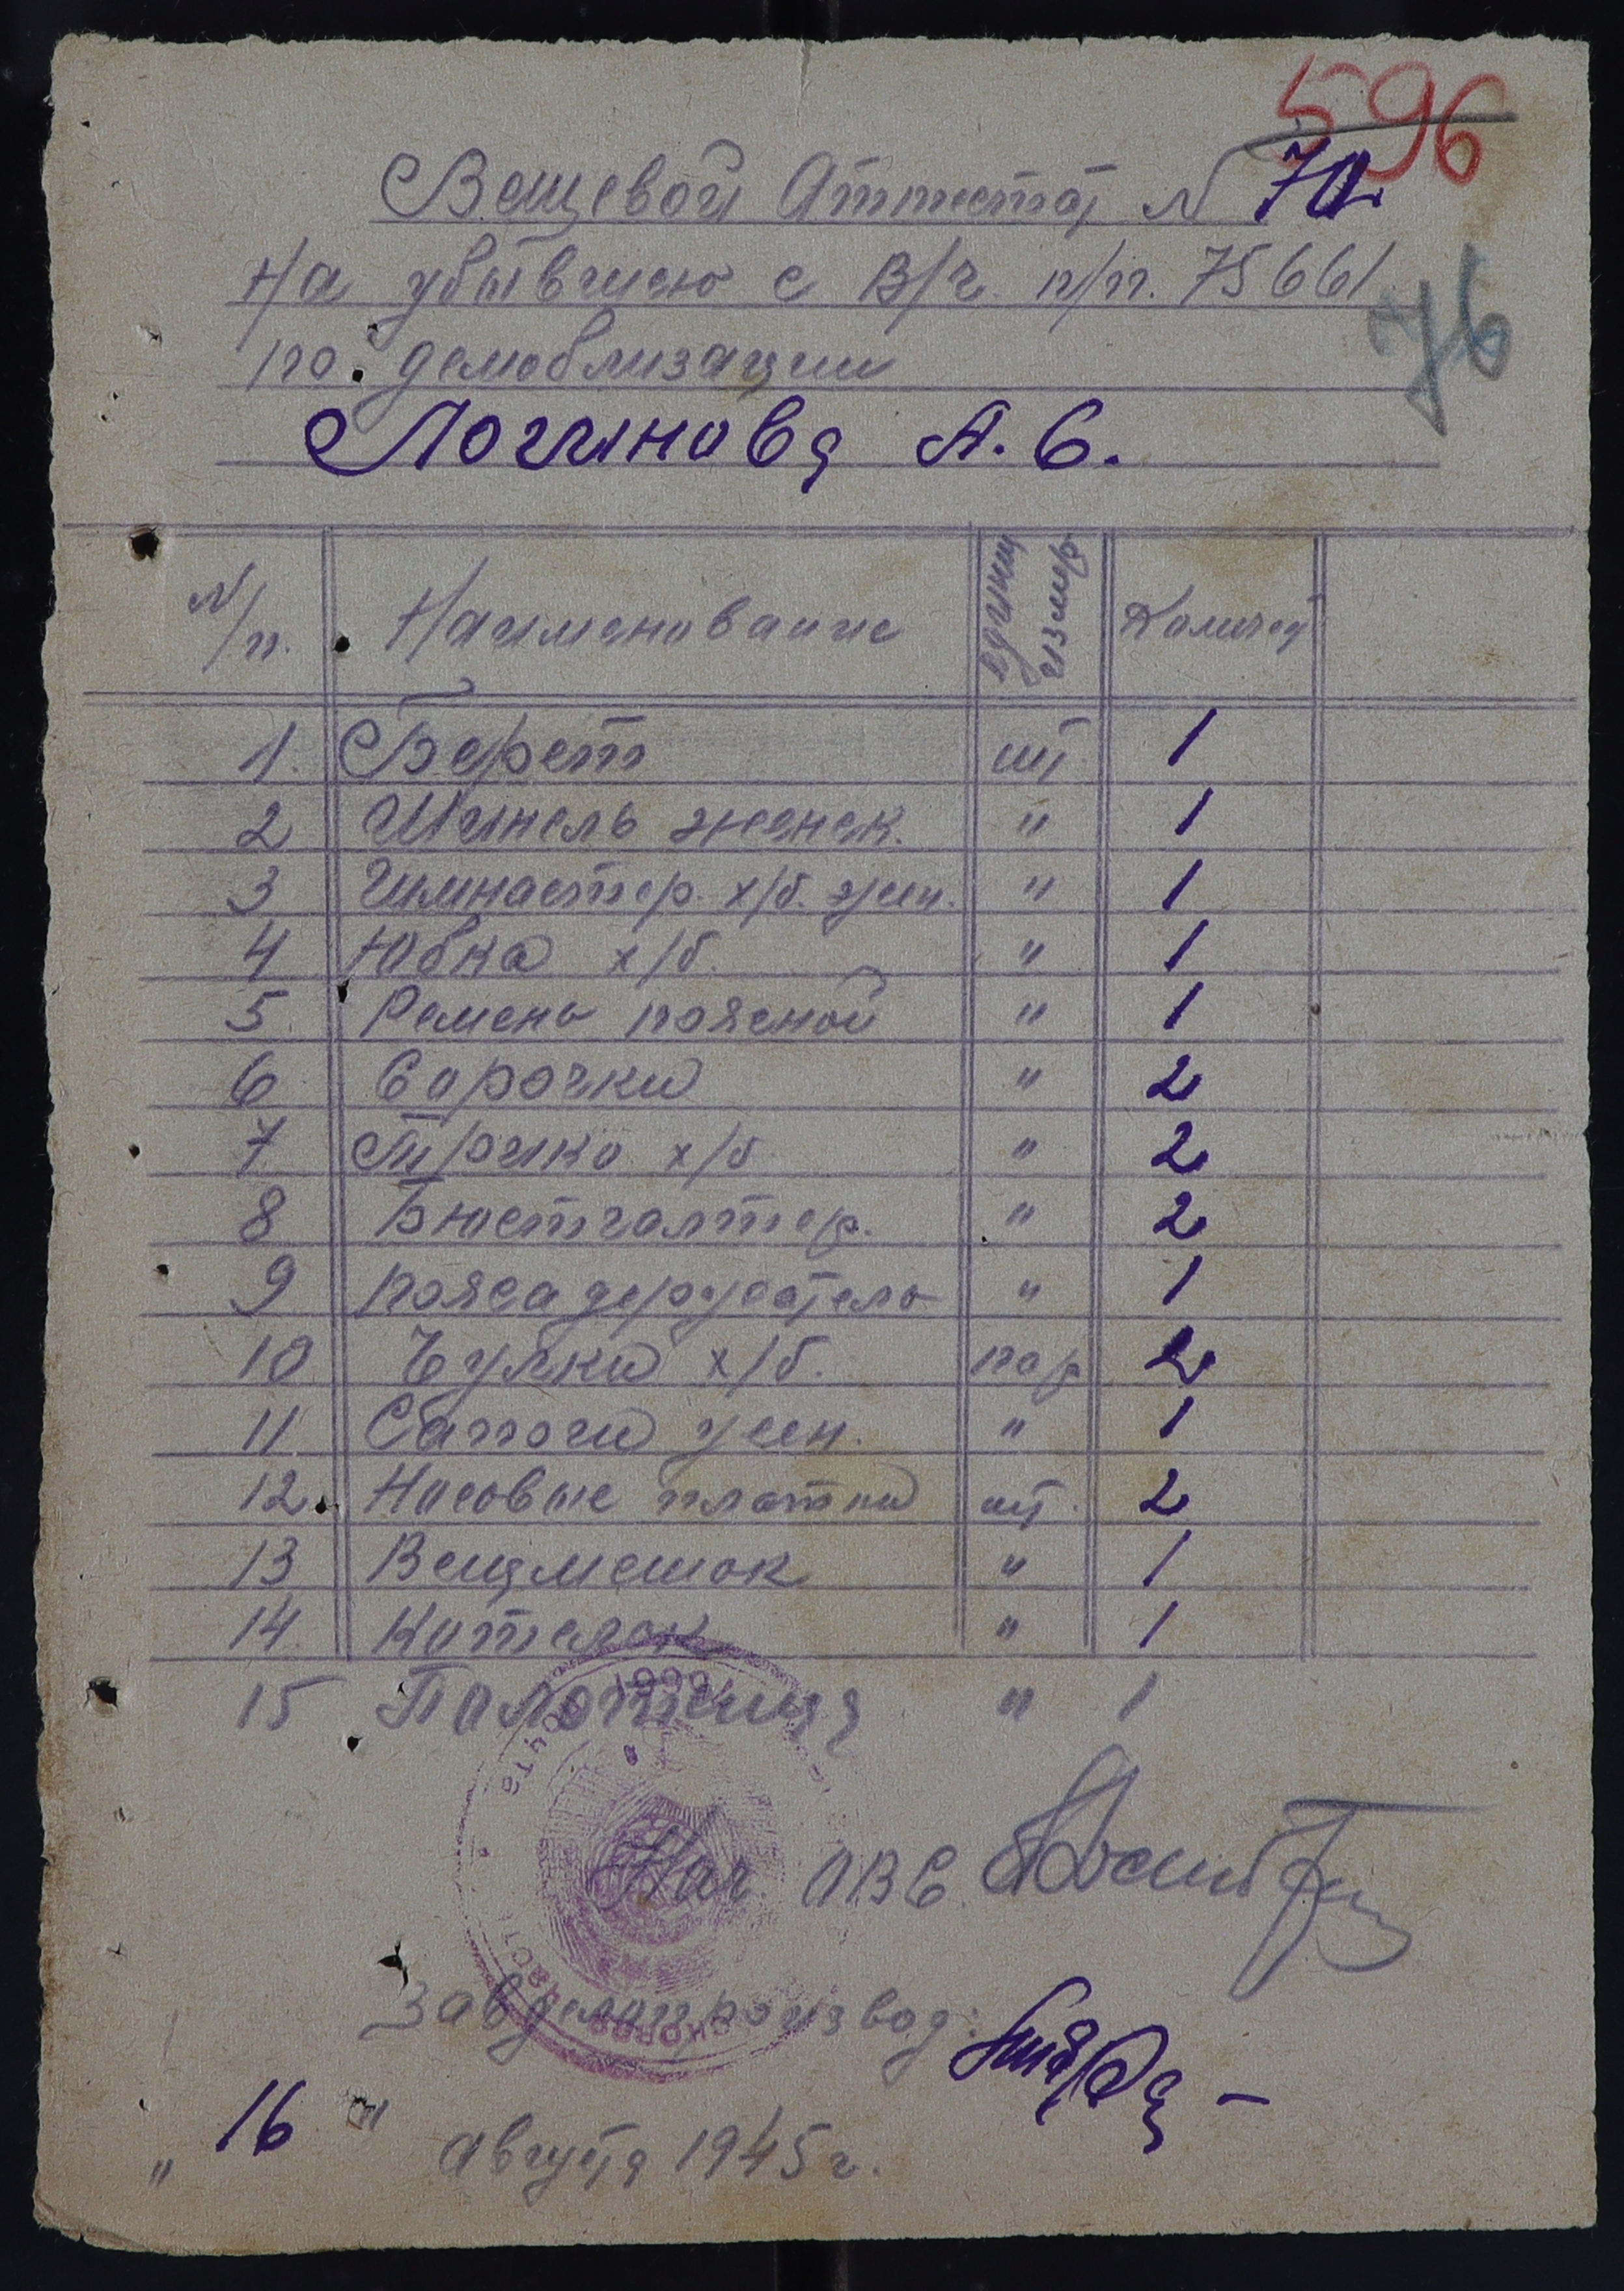 596
Вещевой Аттестат № 72
76
На убывшею с В/ч. п/п. 75661
по демоблизации
Логинова А. С.
N/п. Наименование Единиц измер Количест
1. Берет шт. 1
2 Шинель женск. " 1
3 Гимнастер. х/б. жен. " 1
4 Юбка х/б. " 1
5. Ремень поясной " 1
6 Сорочки " 2
7. Трико х/б " 2
8 Бюстгалтер. " 2
9 поясадержатель " 1
10 Чулки х/б. пар 2
11 Сапоги жен. " 1
12. Носовые платки шт. 2
13 Вещмешок " 1
14. Котелок " 1
15 Полотенца " 1
Нач. ОВС.
Зав делопроизвод:
" 16 " августа 1945 г.